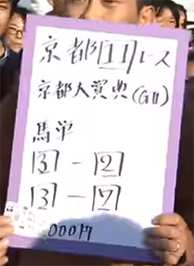 京都11レース
京都大賞典(GII)
馬単
3-2
3-7
000円